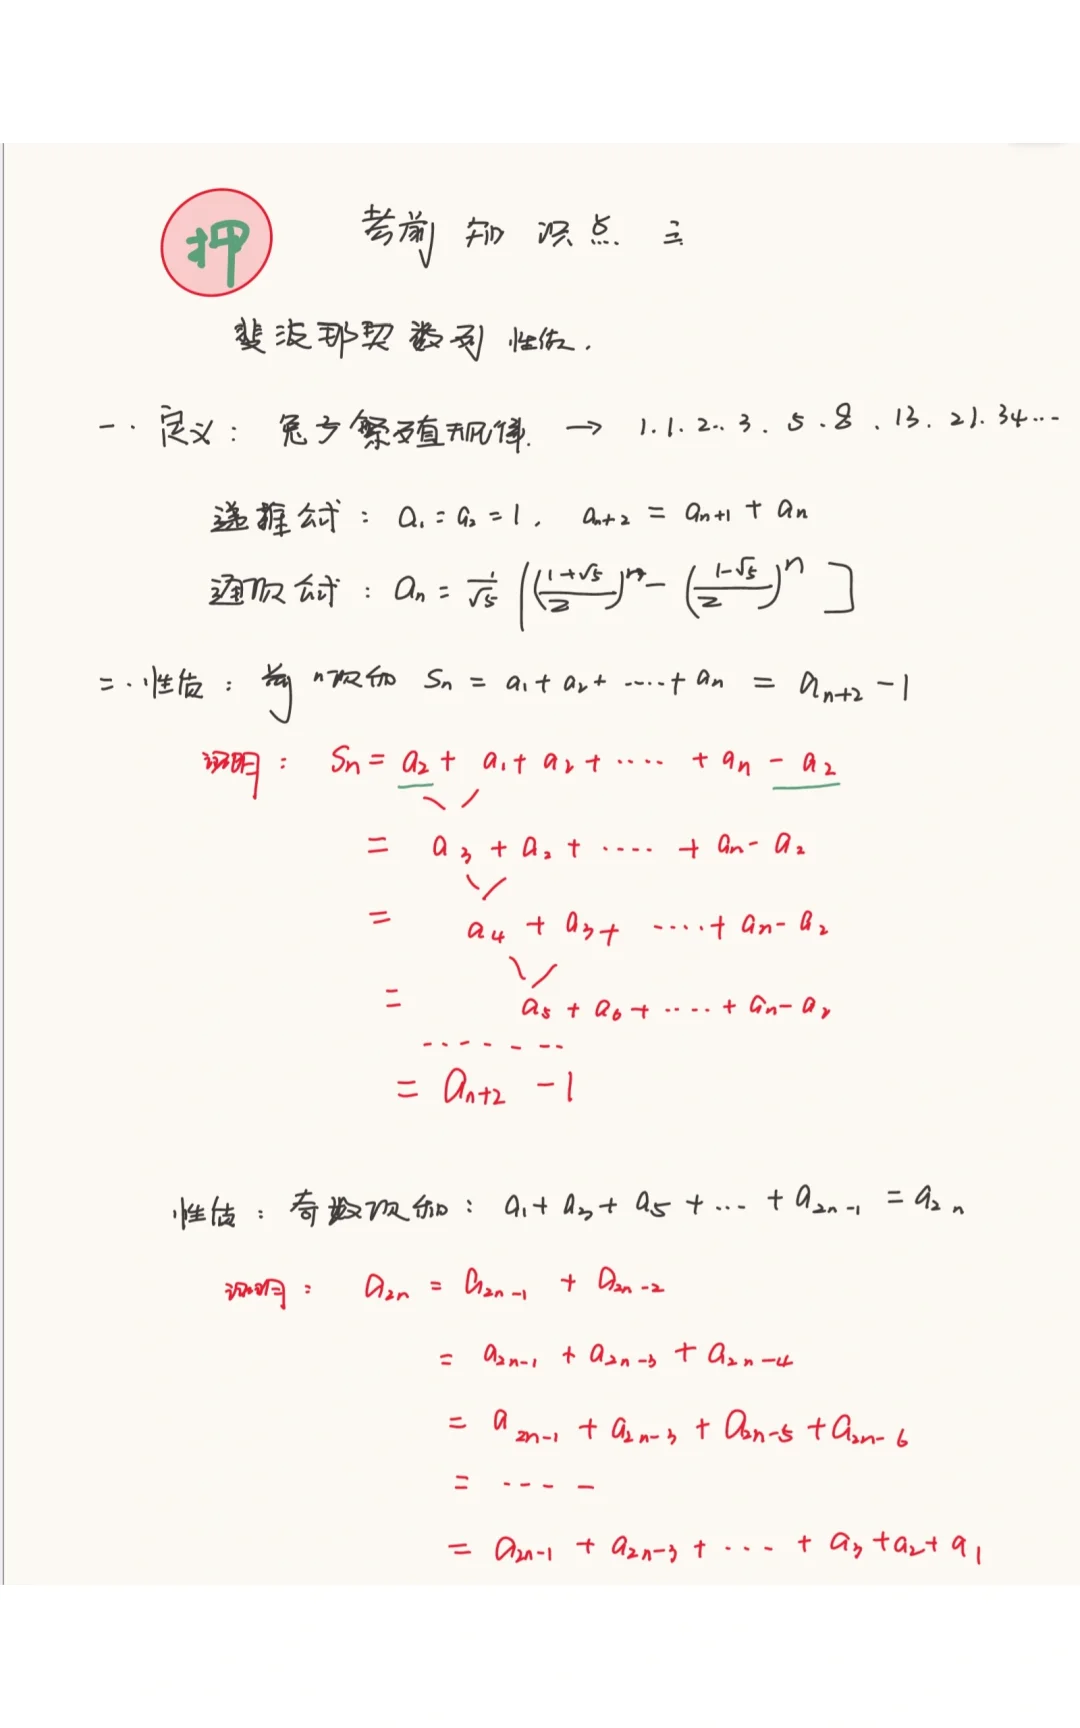 押
考前知识点.三
斐波那契数列性质.
一.定义:兔子繁殖规律.→1.1.2..3.5.8.13.21.34...
递推公式:a₁=a₂=1, aₙ₊₂=aₙ₊₁+aₙ
通项公式:aₙ=1/√5[((1+√5)/2)ⁿ-((1-√5)/2)ⁿ]
二.性质:前n项和 Sₙ=a₁+a₂+·····+aₙ=aₙ₊₂-1
证明:Sₙ=a₂+a₁+a₂+·····+aₙ-a₂
=a₃+a₂+·····+aₙ-a₂
=a₄+a₃+·····+aₙ-a₂
=a₅+a₆+·····+aₙ-a₂
·······
=aₙ₊₂-1
性质:奇数项和:a₁+a₃+a₅+...+a₂ₙ₋₁=a₂ₙ
证明:a₂ₙ=a₂ₙ₋₁+a₂ₙ₋₂
=a₂ₙ₋₁+a₂ₙ₋₃+a₂ₙ₋₄
=a₂ₙ₋₁+a₂ₙ₋₃+a₂ₙ₋₅+a₂ₙ₋₆
=····
=a₂ₙ₋₁+a₂ₙ₋₃+...+a₃+a₂+a₁